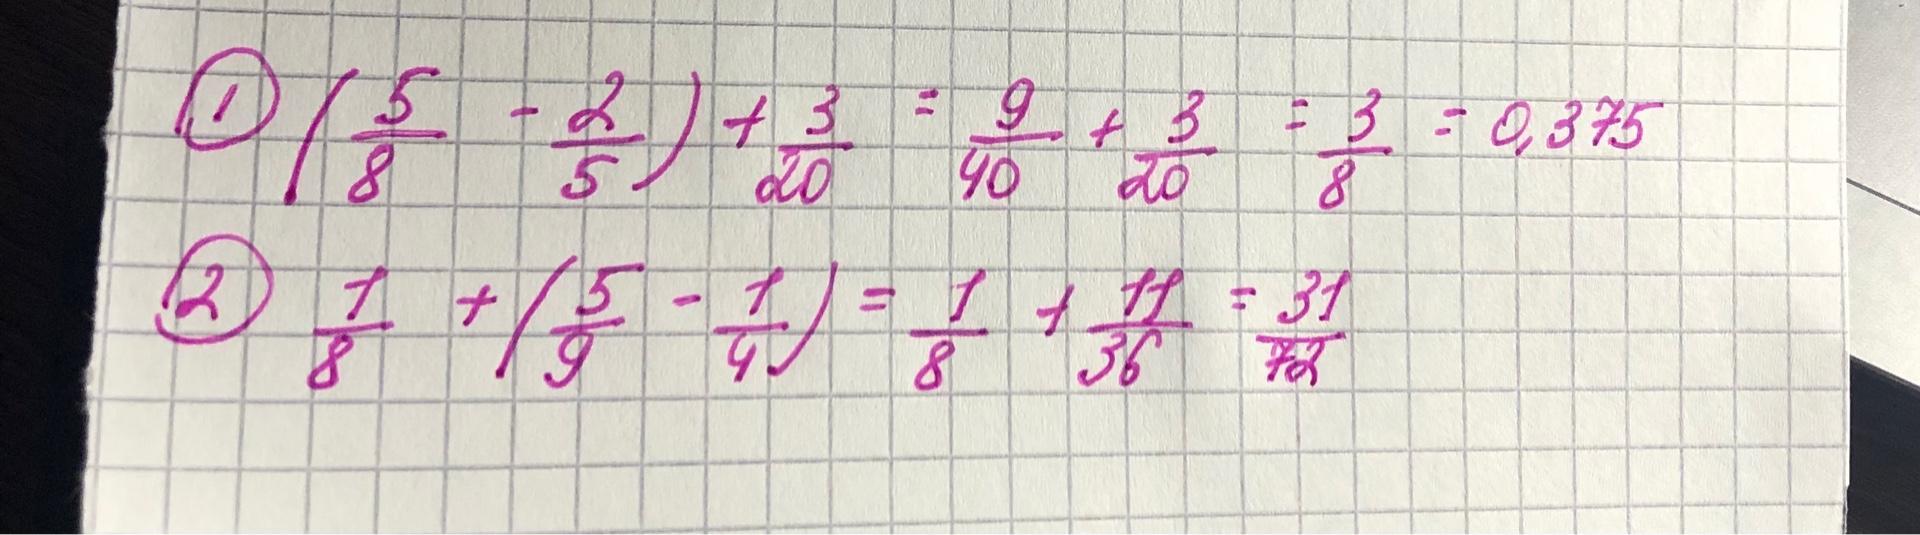 ① (5/8 - 2/5) + 3/20 = 9/40 + 3/20 = 3/8 = 0,375
② 1/8 + (5/9 - 1/4) = 1/8 + 11/36 = 31/72